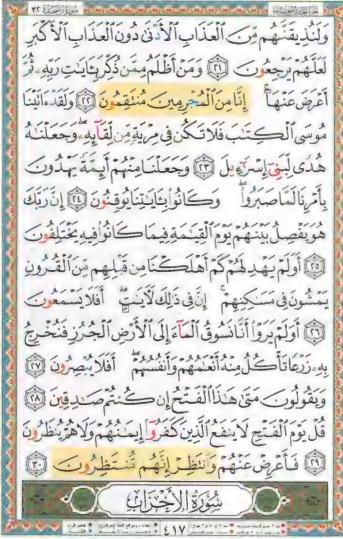 وَلَنُذِيقَنَّهُم مِّنَ ٱلْعَذَابِ ٱلْأَدْنَىٰ دُونَ ٱلْعَذَابِ ٱلْأَكْبَرِ
لَعَلَّهُمْ يَرْجِعُونَ ٢١ وَمَنْ أَظْلَمُ مِمَّن ذُكِّرَ بِـَٔايَـٰتِ رَبِّهِۦ ثُمَّ
أَعْرَضَ عَنْهَآ إِنَّا مِنَ ٱلْمُجْرِمِينَ مُنتَقِمُونَ ٢٢ وَلَقَدْ ءَاتَيْنَا
مُوسَى ٱلْكِتَـٰبَ فَلَا تَكُن فِى مِرْيَةٍ مِّن لِّقَآئِهِۦ وَجَعَلْنَـٰهُ
هُدًى لِّبَنِىٓ إِسْرَٰٓءِيلَ ٢٣ وَجَعَلْنَا مِنْهُمْ أَئِمَّةً يَهْدُونَ
بِأَمْرِنَا لَمَّا صَبَرُوا۟ وَكَانُوا۟ بِـَٔايَـٰتِنَا يُوقِنُونَ ٢٤ إِنَّ رَبَّكَ
هُوَ يَفْصِلُ بَيْنَهُمْ يَوْمَ ٱلْقِيَـٰمَةِ فِيمَا كَانُوا۟ فِيهِ يَخْتَلِفُونَ
٢٥ أَوَلَمْ يَهْدِ لَهُمْ كَمْ أَهْلَكْنَا مِن قَبْلِهِم مِّنَ ٱلْقُرُونِ
يَمْشُونَ فِى مَسَـٰكِنِهِمْ إِنَّ فِى ذَٰلِكَ لَـَٔايَـٰتٍ أَفَلَا يَسْمَعُونَ
٢٦ أَوَلَمْ يَرَوْا۟ أَنَّا نَسُوقُ ٱلْمَآءَ إِلَى ٱلْأَرْضِ ٱلْجُرُزِ فَنُخْرِجُ
بِهِۦ زَرْعًا تَأْكُلُ مِنْهُ أَنْعَـٰمُهُمْ وَأَنفُسُهُمْ أَفَلَا يُبْصِرُونَ ٢٧
وَيَقُولُونَ مَتَىٰ هَـٰذَا ٱلْفَتْحُ إِن كُنتُمْ صَـٰدِقِينَ ٢٨
قُلْ يَوْمَ ٱلْفَتْحِ لَا يَنفَعُ ٱلَّذِينَ كَفَرُوٓا۟ إِيمَـٰنُهُمْ وَلَا هُمْ يُنظَرُونَ
٢٩ فَأَعْرِضْ عَنْهُمْ وَٱنتَظِرْ إِنَّهُم مُّنتَظِرُونَ ٣٠
سُورَةُ الأَحْزَابِ
٤١٧